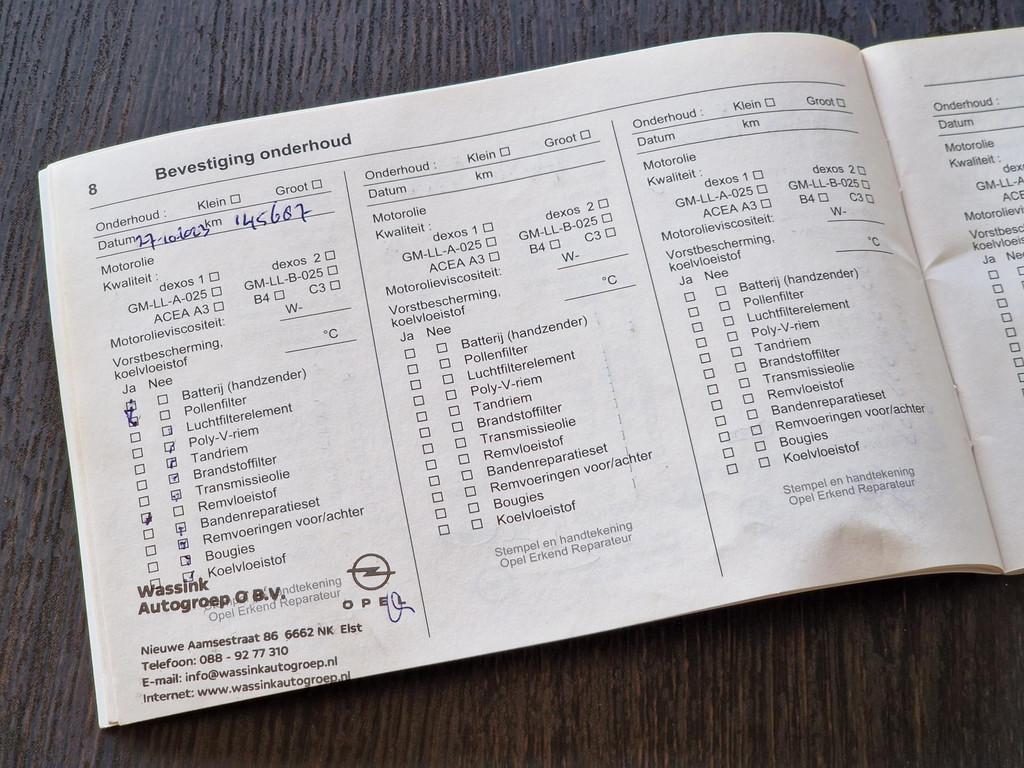 8
Bevestiging onderhoud
Onderhoud : Klein Groot
Datum 27-10-2023 km 145687
Motorolie
Kwaliteit : dexos 1 dexos 2
GM-LL-A-025 GM-LL-B-025
ACEA A3 B4 C3
Motorolieviscositeit: W-
Vorstbescherming,
koelvloeistof °C
Ja Nee
Batterij (handzender)
Pollenfilter
Luchtfilterelement
Poly-V-riem
Tandriem
Brandstoffilter
Transmissieolie
Remvloeistof
Bandenreparatieset
Remvoeringen voor/achter
Bougies
Koelvloeistof
Wassink
Autogroep O B.V.
Opel Erkend Reparateur
OPEL
Nieuwe Aamsestraat 86 6662 NK Elst
Telefoon: 088 - 92 77 310
E-mail: info@wassinkautogroep.nl
Internet: www.wassinkautogroep.nl
Onderhoud : Klein Groot
Datum km
Motorolie
Kwaliteit : dexos 1 dexos 2
GM-LL-A-025 GM-LL-B-025
ACEA A3 B4 C3
Motorolieviscositeit: W-
Vorstbescherming,
koelvloeistof °C
Ja Nee
Batterij (handzender)
Pollenfilter
Luchtfilterelement
Poly-V-riem
Tandriem
Brandstoffilter
Transmissieolie
Remvloeistof
Bandenreparatieset
Remvoeringen voor/achter
Bougies
Koelvloeistof
Stempel en handtekening
Opel Erkend Reparateur
Onderhoud : Klein Groot
Datum km
Motorolie
Kwaliteit : dexos 1 dexos 2
GM-LL-A-025 GM-LL-B-025
ACEA A3 B4 C3
Motorolieviscositeit: W-
Vorstbescherming,
koelvloeistof °C
Ja Nee
Batterij (handzender)
Pollenfilter
Luchtfilterelement
Poly-V-riem
Tandriem
Brandstoffilter
Transmissieolie
Remvloeistof
Bandenreparatieset
Remvoeringen voor/achter
Bougies
Koelvloeistof
Stempel en handtekening
Opel Erkend Reparateur
Onderhoud :
Datum
Motorolie
Kwaliteit :
GM-LL-A
ACE
Motorolievi
Vorstbesc
koelvloei
Ja Nee